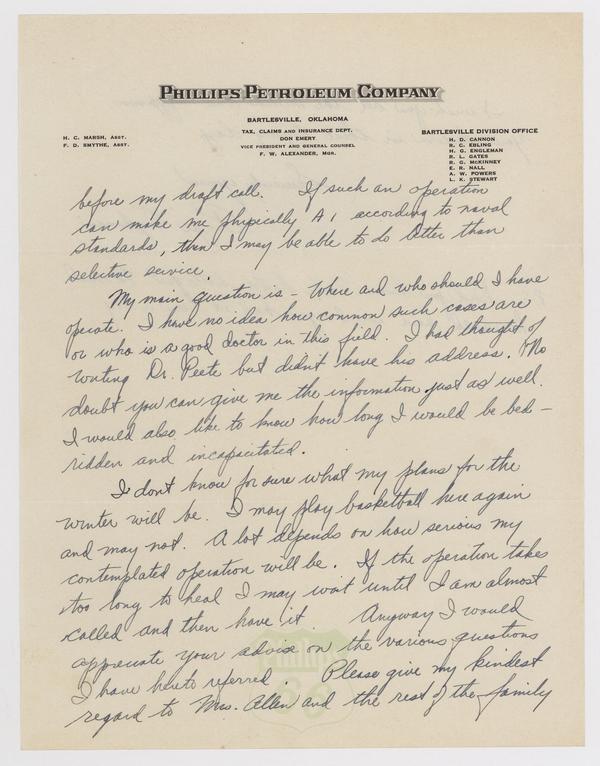 PHILLIPS PETROLEUM COMPANY
BARTLESVILLE, OKLAHOMA
TAX, CLAIMS AND INSURANCE DEPT.
DON EMERY
VICE PRESIDENT AND GENERAL COUNSEL
F. W. ALEXANDER, MGR.
H. C. MARSH, ASST.
F. D. SMYTHE, ASST.
BARTLESVILLE DIVISION OFFICE
H. D. CANNON
R. C. EBLING
H. G. ENGLEMAN
R. L. GATES
R. G. MCKINNEY
E. R. NALL
A. W. POWERS
L. K. STEWART
before my draft call. If such an operation
can make me phipically A 1 according to naval
standards, then I may be able to do better than
selective service.
My main question is - Where and who should I have
operate. I have no idea how common such cases are
or who is a good doctor in this field. I had thought of
writing Dr. Peete but didn't have his address. No
doubt you can give me the information just as well.
I would also like to know how long I would be bed-
ridden and incapacitated.
I dont know for sure what my plans for the
winter will be. I may play basketball here again
and may not. A lot depends on how serious my
contemplated operation will be. If the operation takes
too long to heal I may wait until I am almost
called and then have it. Anyway I would
appreciate your advise on the various questions
I have hereto referred. Please give my kindest
regard to Mrs. Allen and the rest of the family
Phillips
66